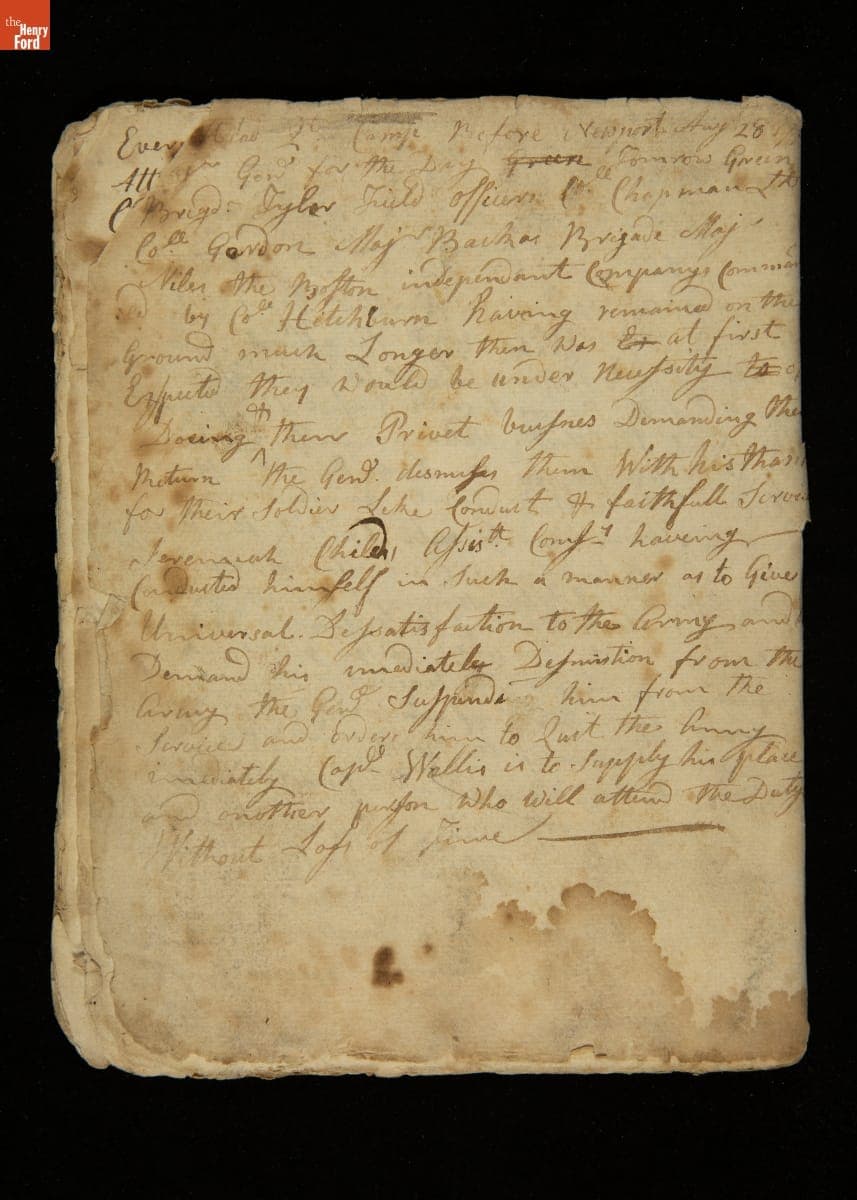 the
Henry
Ford
Every Camp Before Newport Aug 28
Gen.l for the Day Green Tomrow Green
Brigd. Tyler Field Officers Co.lle Chapman Lt
Co.lle Gordon Maj.r Backas Brigade Maj.r
Niles the Boston independant Companys Comman
by Co.lle Hitchburn having remained on the
Ground much Longer then was at first
Expected they would be under Necessity to
Doeing & their Privet buisnes Demanding the
Return ^ the Gen.l desmises them With his than
for their Soldier Like Conduct & faithfull Servic
Jeremiah Childs Assis.tt Coms.y haveing
Conducted himself in Such a manner as to Give
Universal Dessatisfaction to the Army and
Demand his imediately Desmistion from the
Army the Gen.l Suspends him from the
Service and orders him to Quit the Army
imediately Cap.tn Wallis is to Supply his place
and another person Who will attend the Duty
Without Loss of Time